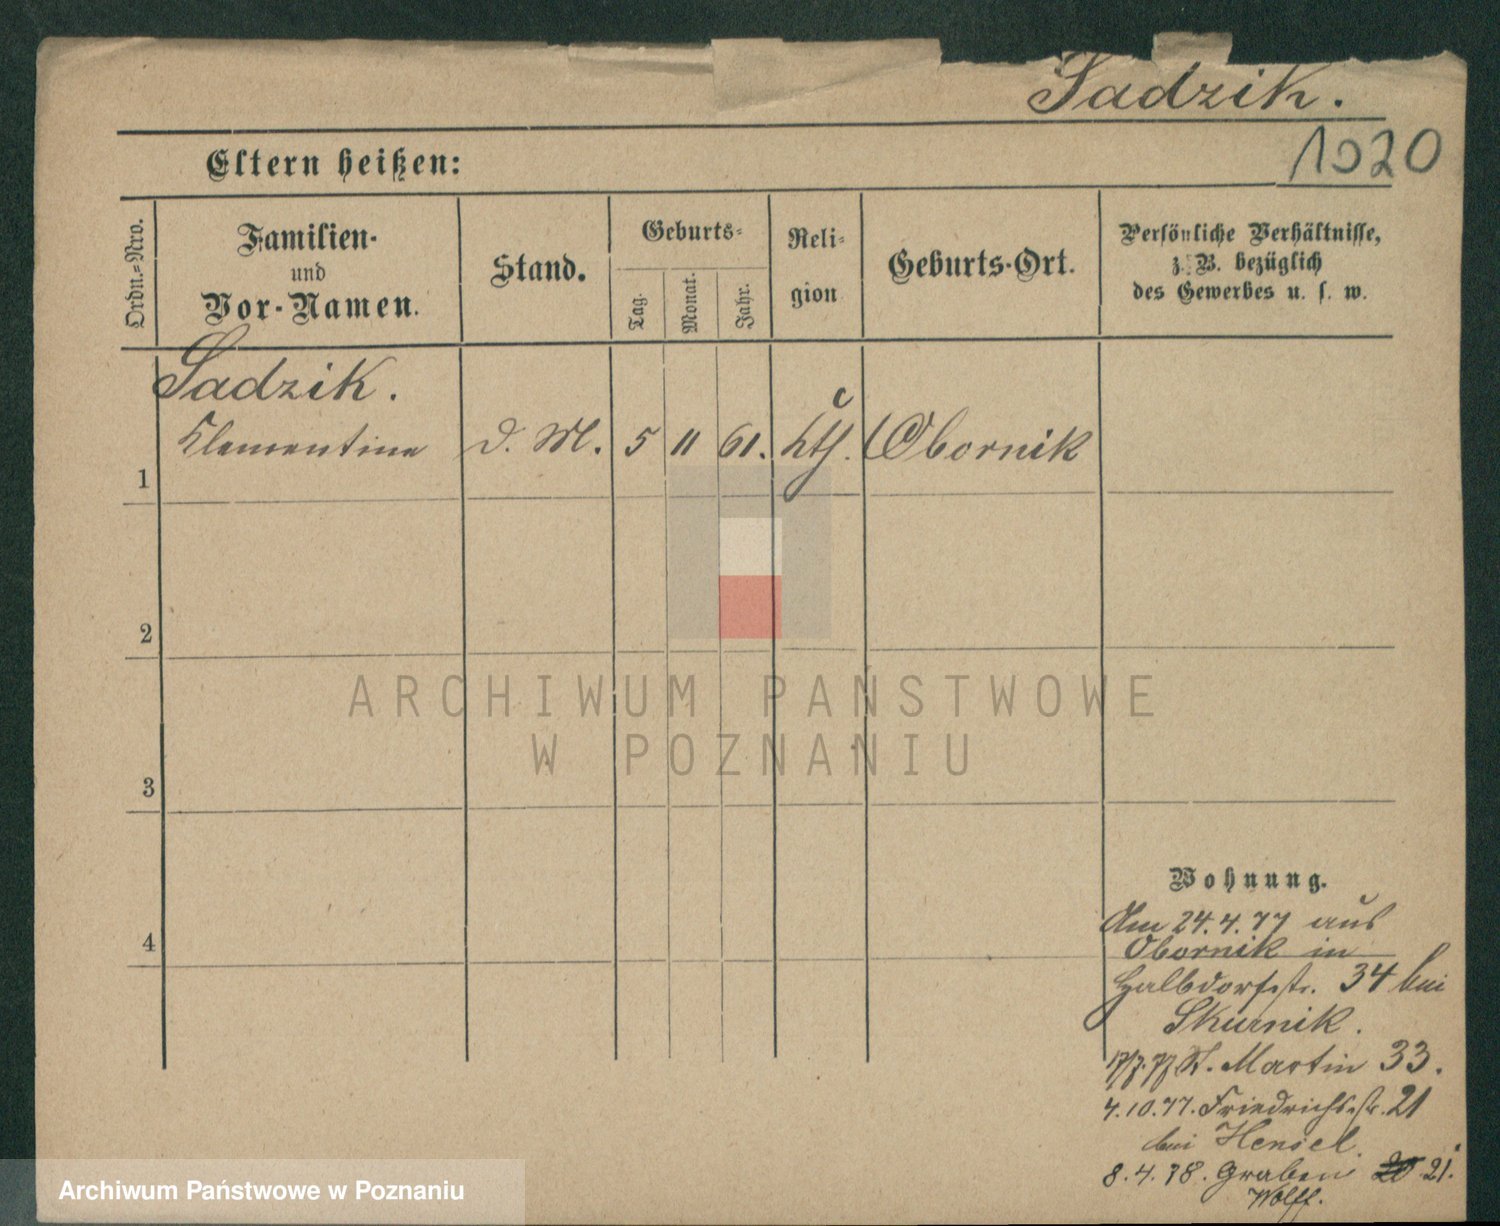 Sadzik.
1020
Eltern heißen:
Ordn.-Nro.
Familien-
und
Vor-Namen.
Stand.
Geburts-
Tag.
Monat.
Jahr.
Reli-
gion
Geburts-Ort.
Persönliche Verhältnisse,
z. B. bezüglich
des Gewerbes u. s. w.
Sadzik.
Klementine
d. M.
5
11
61.
kth.
Obornik
1
2
3
4
ARCHIWUM PAŃSTWOWE
W POZNANIU
Wohnung.
Am 24.4.77 aus
Obornik in
Halbdorfstr. 34 bei
Skurnik.
17/7.77 St. Martin 33.
4.10.77. Friedrichsstr. 21
bei Hensel.
8.4.78. Graben 20 21.
Wolff.
Archiwum Państwowe w Poznaniu